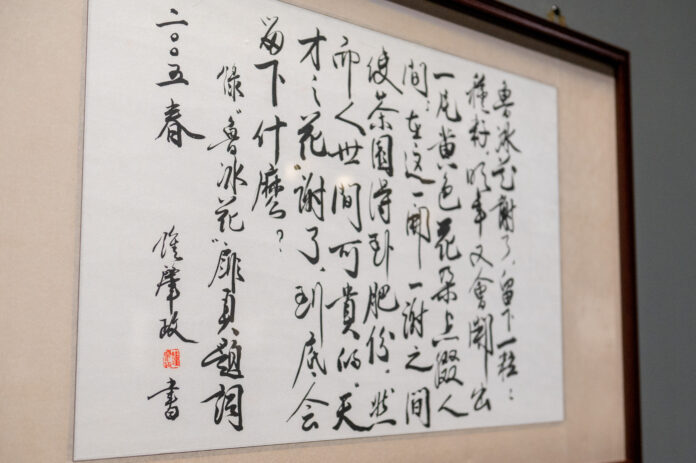 魯冰花謝了，留下一粒：
種籽，明年又會開出
一片黃色花朵点綴人
間；在這一開一謝之間
使茶園得到肥份。然
而人世間可貴的"天
才之花"謝了，到底會
留下什麼？
錄"魯冰花"扉頁題詞
二〇〇五春
鍾肇政 書